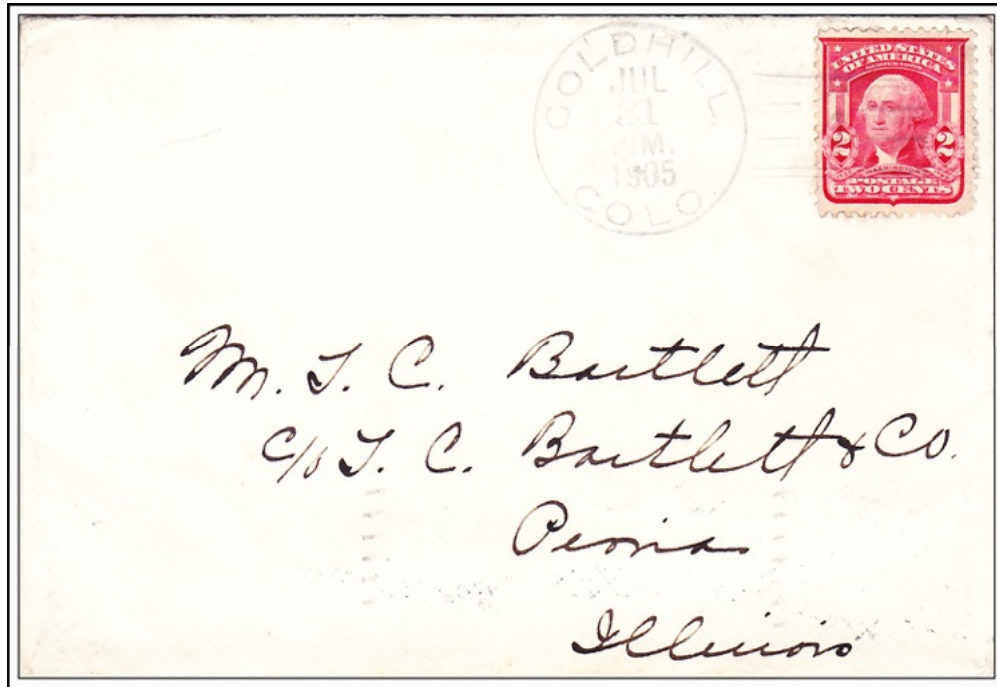 GOLDHILL
JUL
31
M.
1905
COLO.
UNITED STATES
OF AMERICA
2 2
WASHINGTON
POSTAGE
TWO CENTS
M. T. C. Bartlett
c/o T. C. Bartlett & Co.
Peoria
Illinois